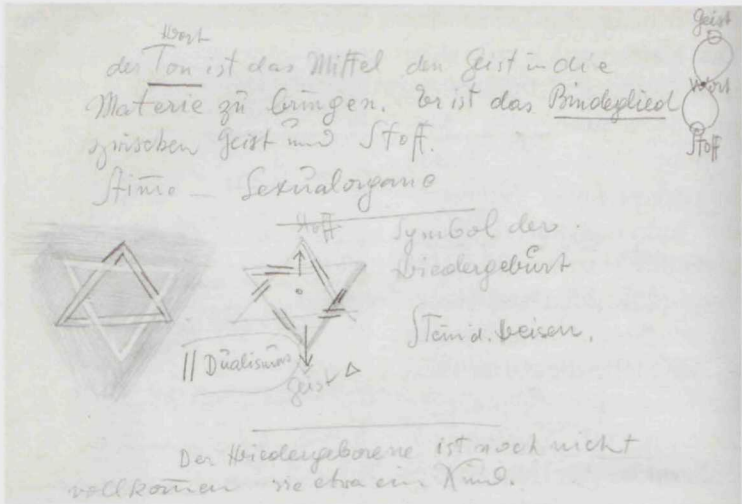 Wort
der Ton ist das Mittel den Geist in die
Materie zu bringen. Er ist das Bindeglied
zwischen Geist und Stoff.
Geist
Wort
Stoff
Stim̄e – Sexualorgane
Stoff
Symbol der
Wiedergeburt
Stein d. Weisen.
|| Dualismus
Geist
Der Wiedergeborene ist noch nicht
vollkom̄en wie etwa ein Kind.